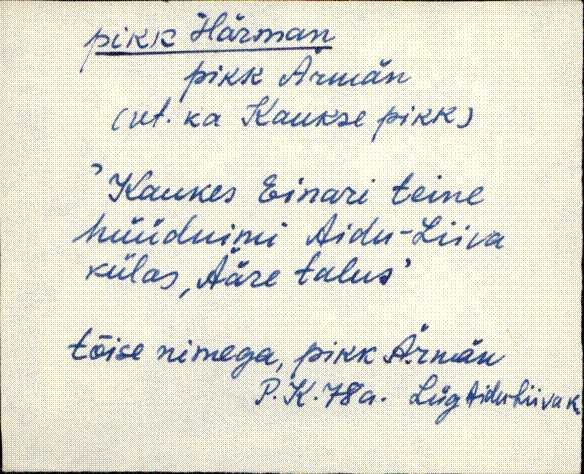 pikk Härman
pikk Ärmän
(vt. ka Kaukse pikk)
'Kaukes Einari teine
hüüdnimi Aidu-Liiva
külas, Ääre talus'
tõise nimega, pikk Ärmän
P. K. 78a. Lüg Aidu-Liiva k.